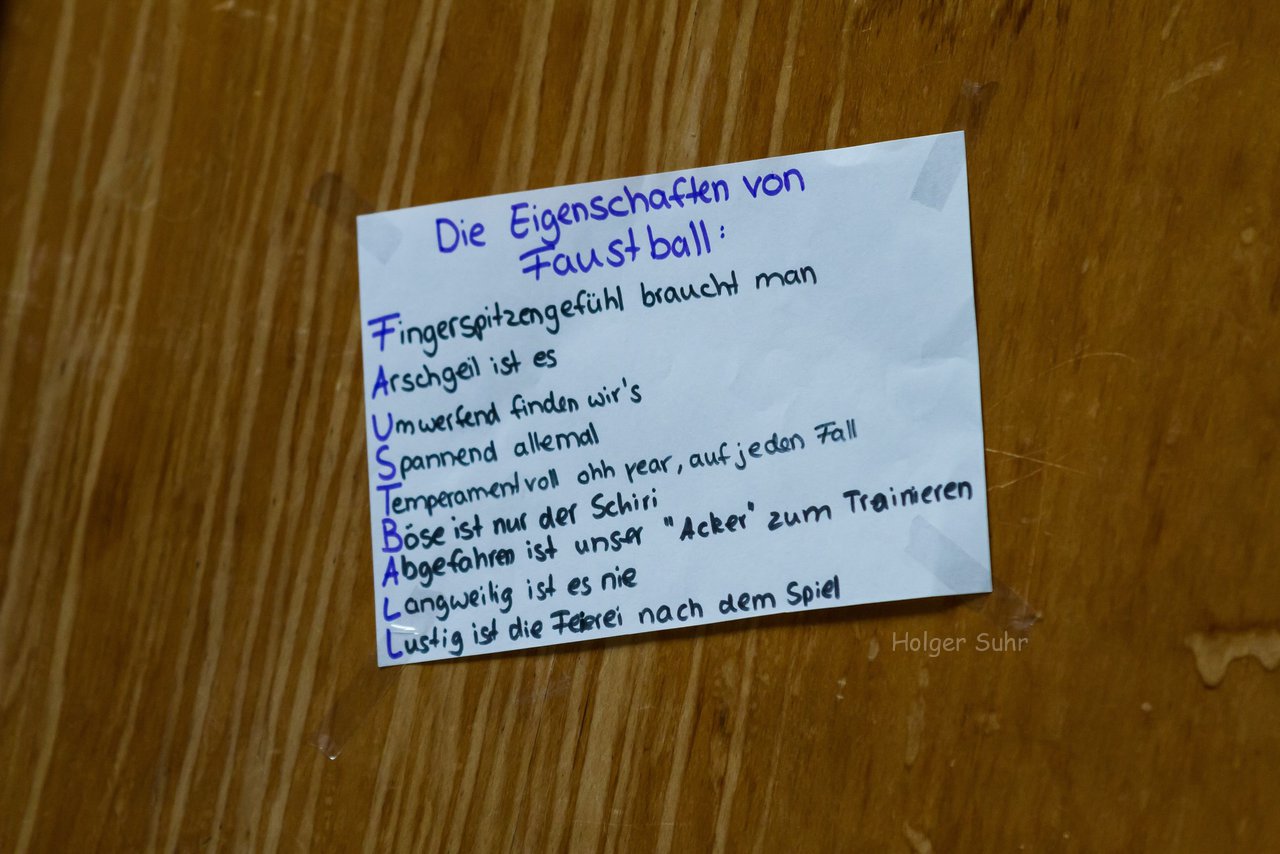 Die Eigenschaften von
Faustball:
Fingerspitzengefühl braucht man
Arschgeil ist es
Umwerfend finden wir's
Spannend allemal
Temperamentvoll ohh year, auf jeden Fall
Böse ist nur der Schiri
Abgefahren ist unser "Acker" zum Trainieren
Langweilig ist es nie
Lustig ist die Feierei nach dem Spiel
Holger Suhr